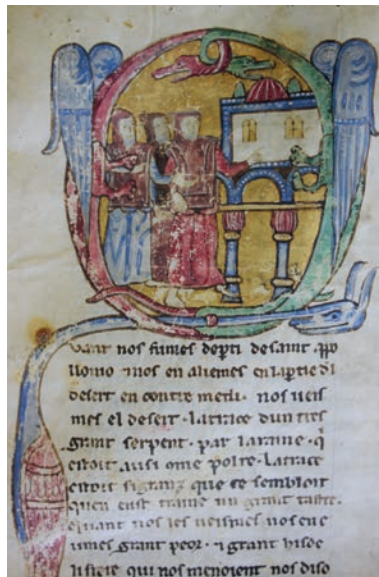 uant nos fumes departi de saint ppo
llonio nos en alienes en lartie dl
desert en contre medi. nos ueis
mes el desert. latrace dun tres
grant serpent. par laraine. q̄
estoit ausi ome poldre. latrace
estoit si granz que ce sembloit
quen eust traine un grant
quant nos les ueismes nos eue
umes grant peor. ⁊ grant hisde
li qui nos menoient nos diso